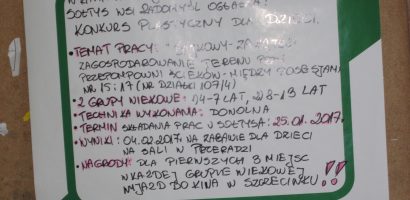 SOŁTYS WSI RADOMYŚL OGŁASZA
KONKURS PLASTYCZNY DLA DZIECI.
• TEMAT PRACY:
ZAGOSPODAROWANIE TERENU PRZY
PRZEPOMPOWNI ŚCIEKÓW - MIĘDZY POSESJAMI
NR 15 i 17 (NR DZIAŁKI 107/4)
• 2 GRUPY WIEKOWE: 4-7 LAT, 8-13 LAT
• TECHNIKA WYKONANIA: DOWOLNA
• TERMIN SKŁADANIA PRAC U SOŁTYSA: 25.01.2017.
• WYNIKI: 04.02.2017 NA ZABAWIE DLA DZIECI
NA SALI W PRZERADZI
• NAGRODY: DLA PIERWSZYCH 3 MIEJSC
W KAŻDEJ GRUPIE WIEKOWEJ
WYJAZD DO KINA W SZCZECINKU!!